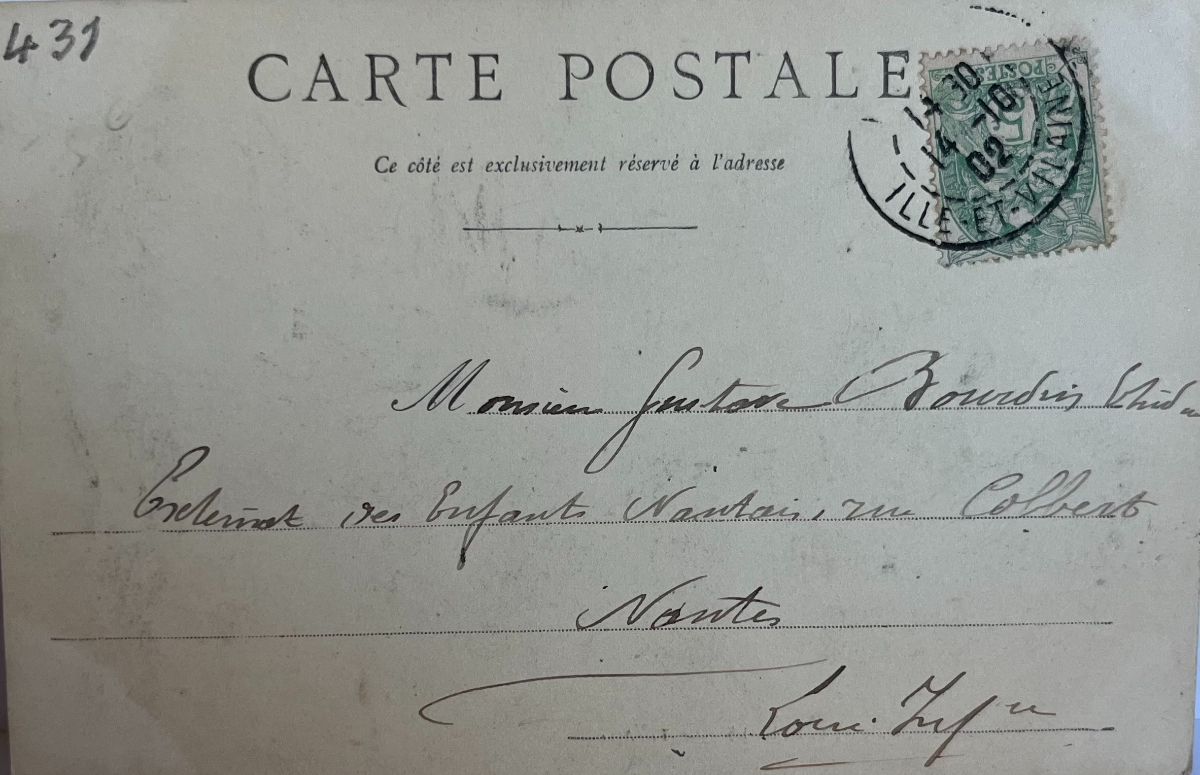 431
CARTE POSTALE
POSTES
14 30
14 -10
02
ILLE-ET-VILAINE
Ce côté est exclusivement réservé à l'adresse
Monsieur Gustave Bourdin
Externat des Enfants Nantais, rue Colbert
Nantes
Loire Infre